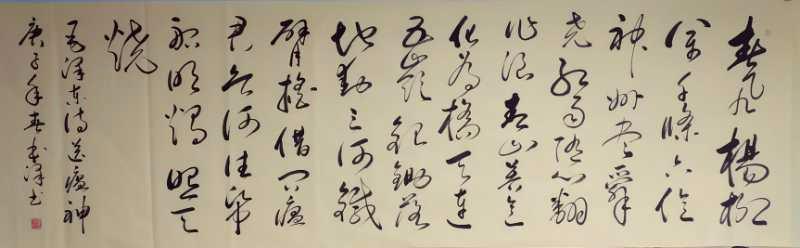 春风楊柳
万千條六億
神州尽舜
尧红雨随心翻
作浪青山着意
化为橋天连
五嶺銀鋤落
地動三河鐵
臂摇借问瘟
君欲何往纸
船明烛照天
烧
毛泽东诗送瘟神
庚子年春泽书